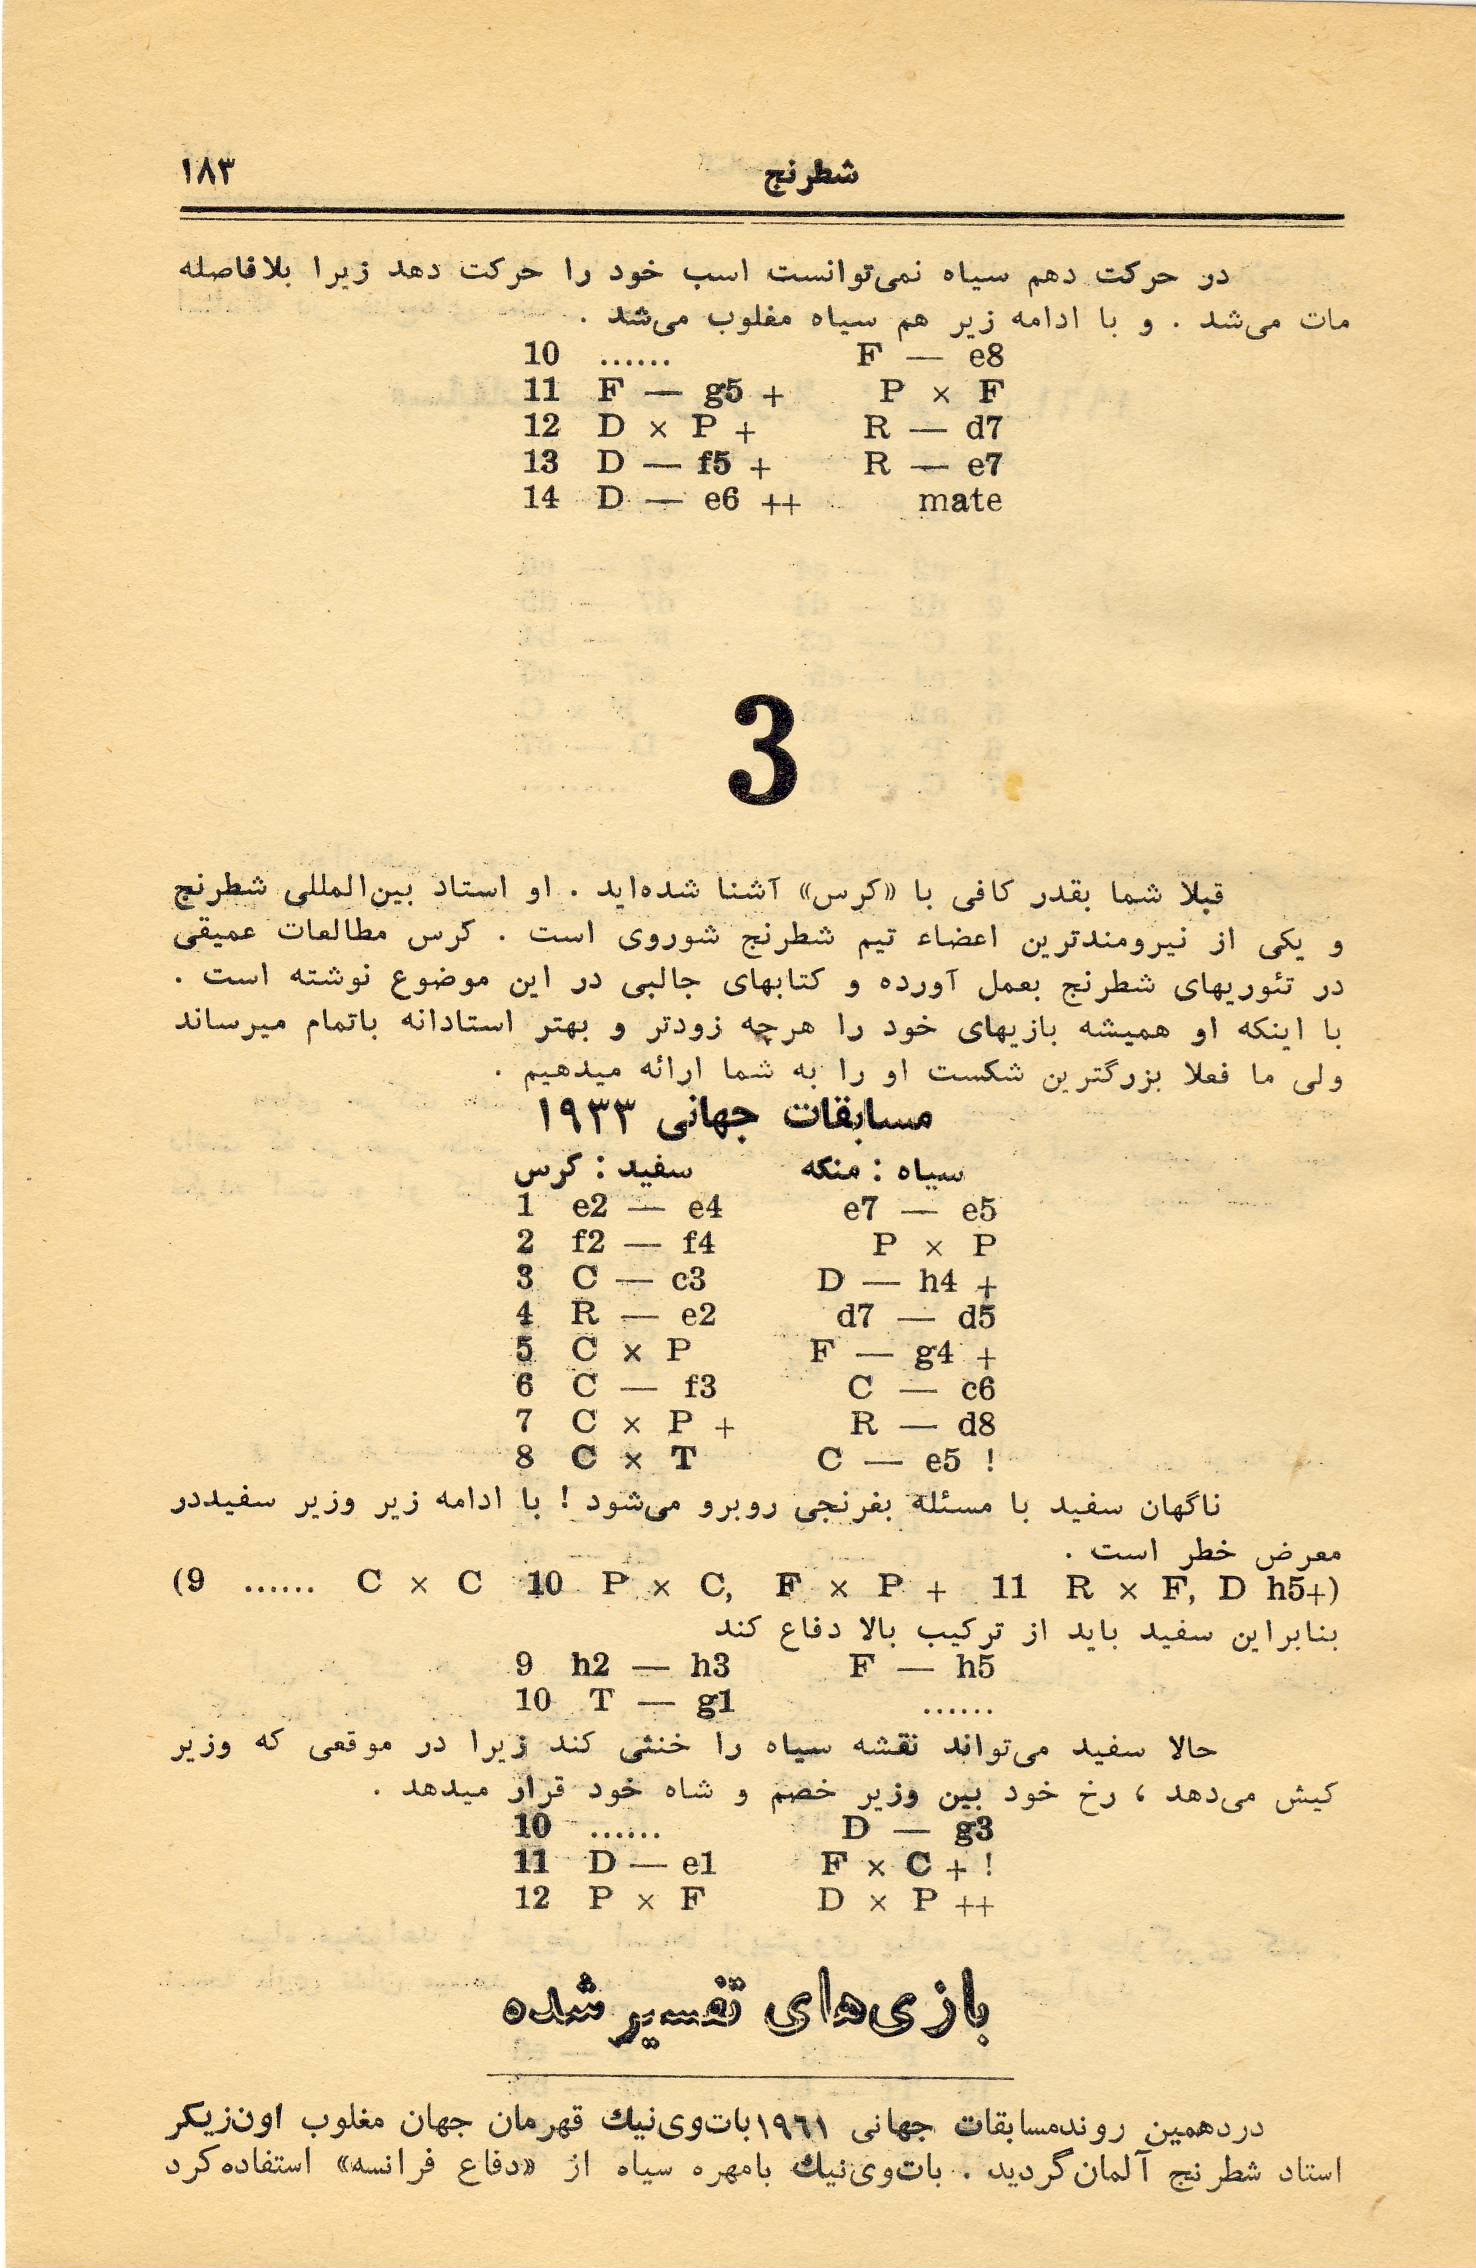 شطرنج ۱۸۳
در حرکت دهم سیاه نمی‌توانست اسب خود را حرکت دهد زیرا بلافاصله
مات می‌شد . و با ادامه زیر هم سیاه مغلوب می‌شد .
10 ...... F — e8
11 F — g5 + P × F
12 D × P + R — d7
13 D — f5 + R — e7
14 D — e6 ++ mate
3
قبلا شما بقدر کافی با «کرس» آشنا شده‌اید . او استاد بین‌المللی شطرنج
و یکی از نیرومندترین اعضاء تیم شطرنج شوروی است . کرس مطالعات عمیقی
در تئوریهای شطرنج بعمل آورده و کتابهای جالبی در این موضوع نوشته است .
با اینکه او همیشه بازیهای خود را هرچه زودتر و بهتر استادانه باتمام میرساند
ولی ما فعلا بزرگترین شکست او را به شما ارائه میدهیم .
مسابقات جهانی ۱۹۳۳
سفید : کرس سیاه : منکه
1 e2 — e4 e7 — e5
2 f2 — f4 P × P
3 C — c3 D — h4 +
4 R — e2 d7 — d5
5 C × P F — g4 +
6 C — f3 C — c6
7 C × P + R — d8
8 C × T C — e5 !
ناگهان سفید با مسئله بغرنجی روبرو می‌شود ! با ادامه زیر وزیر سفیددر
معرض خطر است .
(9 ...... C × C 10 P × C, F × P + 11 R × F, D h5+)
بنابراین سفید باید از ترکیب بالا دفاع کند
9 h2 — h3 F — h5
10 T — g1 ......
حالا سفید می‌تواند نقشه سیاه را خنثی کند زیرا در موقعی که وزیر
کیش می‌دهد ، رخ خود بین وزیر خصم و شاه خود قرار میدهد .
10 ...... D — g3
11 D — e1 F × C + !
12 P × F D × P ++
بازی‌های تفسیر شده
دردهمین روندمسابقات جهانی ۱۹٦۱بات‌وی‌نیك قهرمان جهان مغلوب اون‌زیکر
استاد شطرنج آلمان‌گردید . بات‌وی‌نیك بامهره سیاه از «دفاع فرانسه» استفاده‌کرد